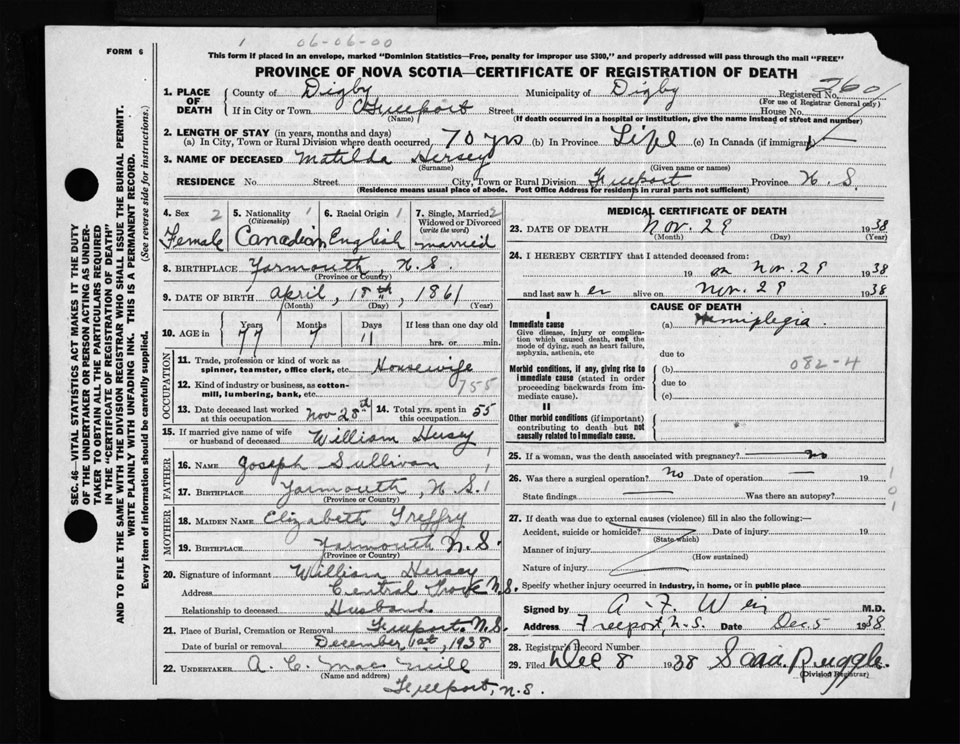 1 06-06-00
FORM 6
This form if placed in an envelope, marked "Dominion Statistics—Free, penalty for improper use $300," and properly addressed will pass through the mail "FREE"
PROVINCE OF NOVA SCOTIA—CERTIFICATE OF REGISTRATION OF DEATH
1. PLACE OF DEATH County of Digby Municipality of Digby Registered No. 260
(For use of Registrar General only)
If in City or Town Freeport Street House No.
(Name) (If death occurred in a hospital or institution, give the name instead of street and number)
2. LENGTH OF STAY (in years, months and days)
(a) In City, Town or Rural Division where death occurred, 70 yrs (b) In Province Life (c) In Canada (if immigrant)
3. NAME OF DECEASED Matilda Hersey
(Surname) (Given name or names)
RESIDENCE No Street City, Town or Rural Division Freeport Province N.S.
(Residence means usual place of abode. Post Office Address for residents in rural parts not sufficient)
4. Sex 2 5. Nationality 1 6. Racial Origin 1 7. Single, Married 2
(Citizenship) Widowed or Divorced
(write the word)
Female Canadian English married
8. BIRTHPLACE Yarmouth, N.S.
(Province or Country)
9. DATE OF BIRTH April, 18th, 1861
(Month) (Day) (Year)
10. AGE in Years Months Days If less than one day old
77 7 11 hrs. or min.
OCCUPATION
11. Trade, profession or kind of work as
spinner, teamster, office clerk, etc. Housewife
12. Kind of industry or business, as cotton-
mill, lumbering, bank, etc. 755
13. Date deceased last worked
at this occupation Nov 28th 14. Total yrs. spent in
this occupation 55
15. If married give name of wife
or husband of deceased William Hersey
FATHER
16. NAME Joseph Sullivan
17. BIRTHPLACE Yarmouth, N.S.
(Province or Country)
MOTHER
18. MAIDEN NAME Elizabeth Treffry
19. BIRTHPLACE Yarmouth N.S.
(Province or Country)
20. Signature of informant William Hersey
Address Central Grove N.S.
Relationship to deceased Husband
21. Place of Burial, Cremation or Removal Freeport, N.S.
Date of burial or removal December 1st, 1938
22. UNDERTAKER A. C. MacNeill
(Name and address)
Freeport, N.S.
MEDICAL CERTIFICATE OF DEATH
23. DATE OF DEATH Nov. 29 1938
(Month) (Day) (Year)
24. I HEREBY CERTIFY that I attended deceased from:
19 on Nov. 29 1938
and last saw her alive on Nov. 29 1938
CAUSE OF DEATH
I
Immediate cause (a) Hemiplegia
Give disease, injury or complica-
tion which caused death, not the
mode of dying, such as heart failure,
asphyxia, asthenia, etc due to
Morbid conditions, if any, giving rise to (b) 082-4
immediate cause (stated in order due to
proceeding backwards from im-
mediate cause). (c)
II
Other morbid conditions (if important)
contributing to death but not
causally related to immediate cause.
25. If a woman, was the death associated with pregnancy? no
26. Was there a surgical operation? No Date of operation 19
State findings Was there an autopsy?
27. If death was due to external causes (violence) fill in also the following:—
Accident, suicide or homicide? Date of injury 19
(State which)
Manner of injury
(How sustained)
Nature of injury
Specify whether injury occurred in industry, in home, or in public place
Signed by A. F. Weir M.D.
Address Freeport, N.S. Date Dec. 5 1938
28. Registrar's Record Number
29. Filed Dec 8 1938 Ruggles
(Division Registrar)
SEC. 46—VITAL STATISTICS ACT MAKES IT THE DUTY
OF THE UNDERTAKER OR PERSON ACTING AS UNDER-
TAKER TO OBTAIN ALL THE PARTICULARS REQUIRED
IN THE "CERTIFICATE OF REGISTRATION OF DEATH"
AND TO FILE THE SAME WITH THE DIVISION REGISTRAR WHO SHALL ISSUE THE BURIAL PERMIT.
WRITE PLAINLY WITH UNFADING INK. THIS IS A PERMANENT RECORD.
Every item of information should be carefully supplied. (See reverse side for instructions.)